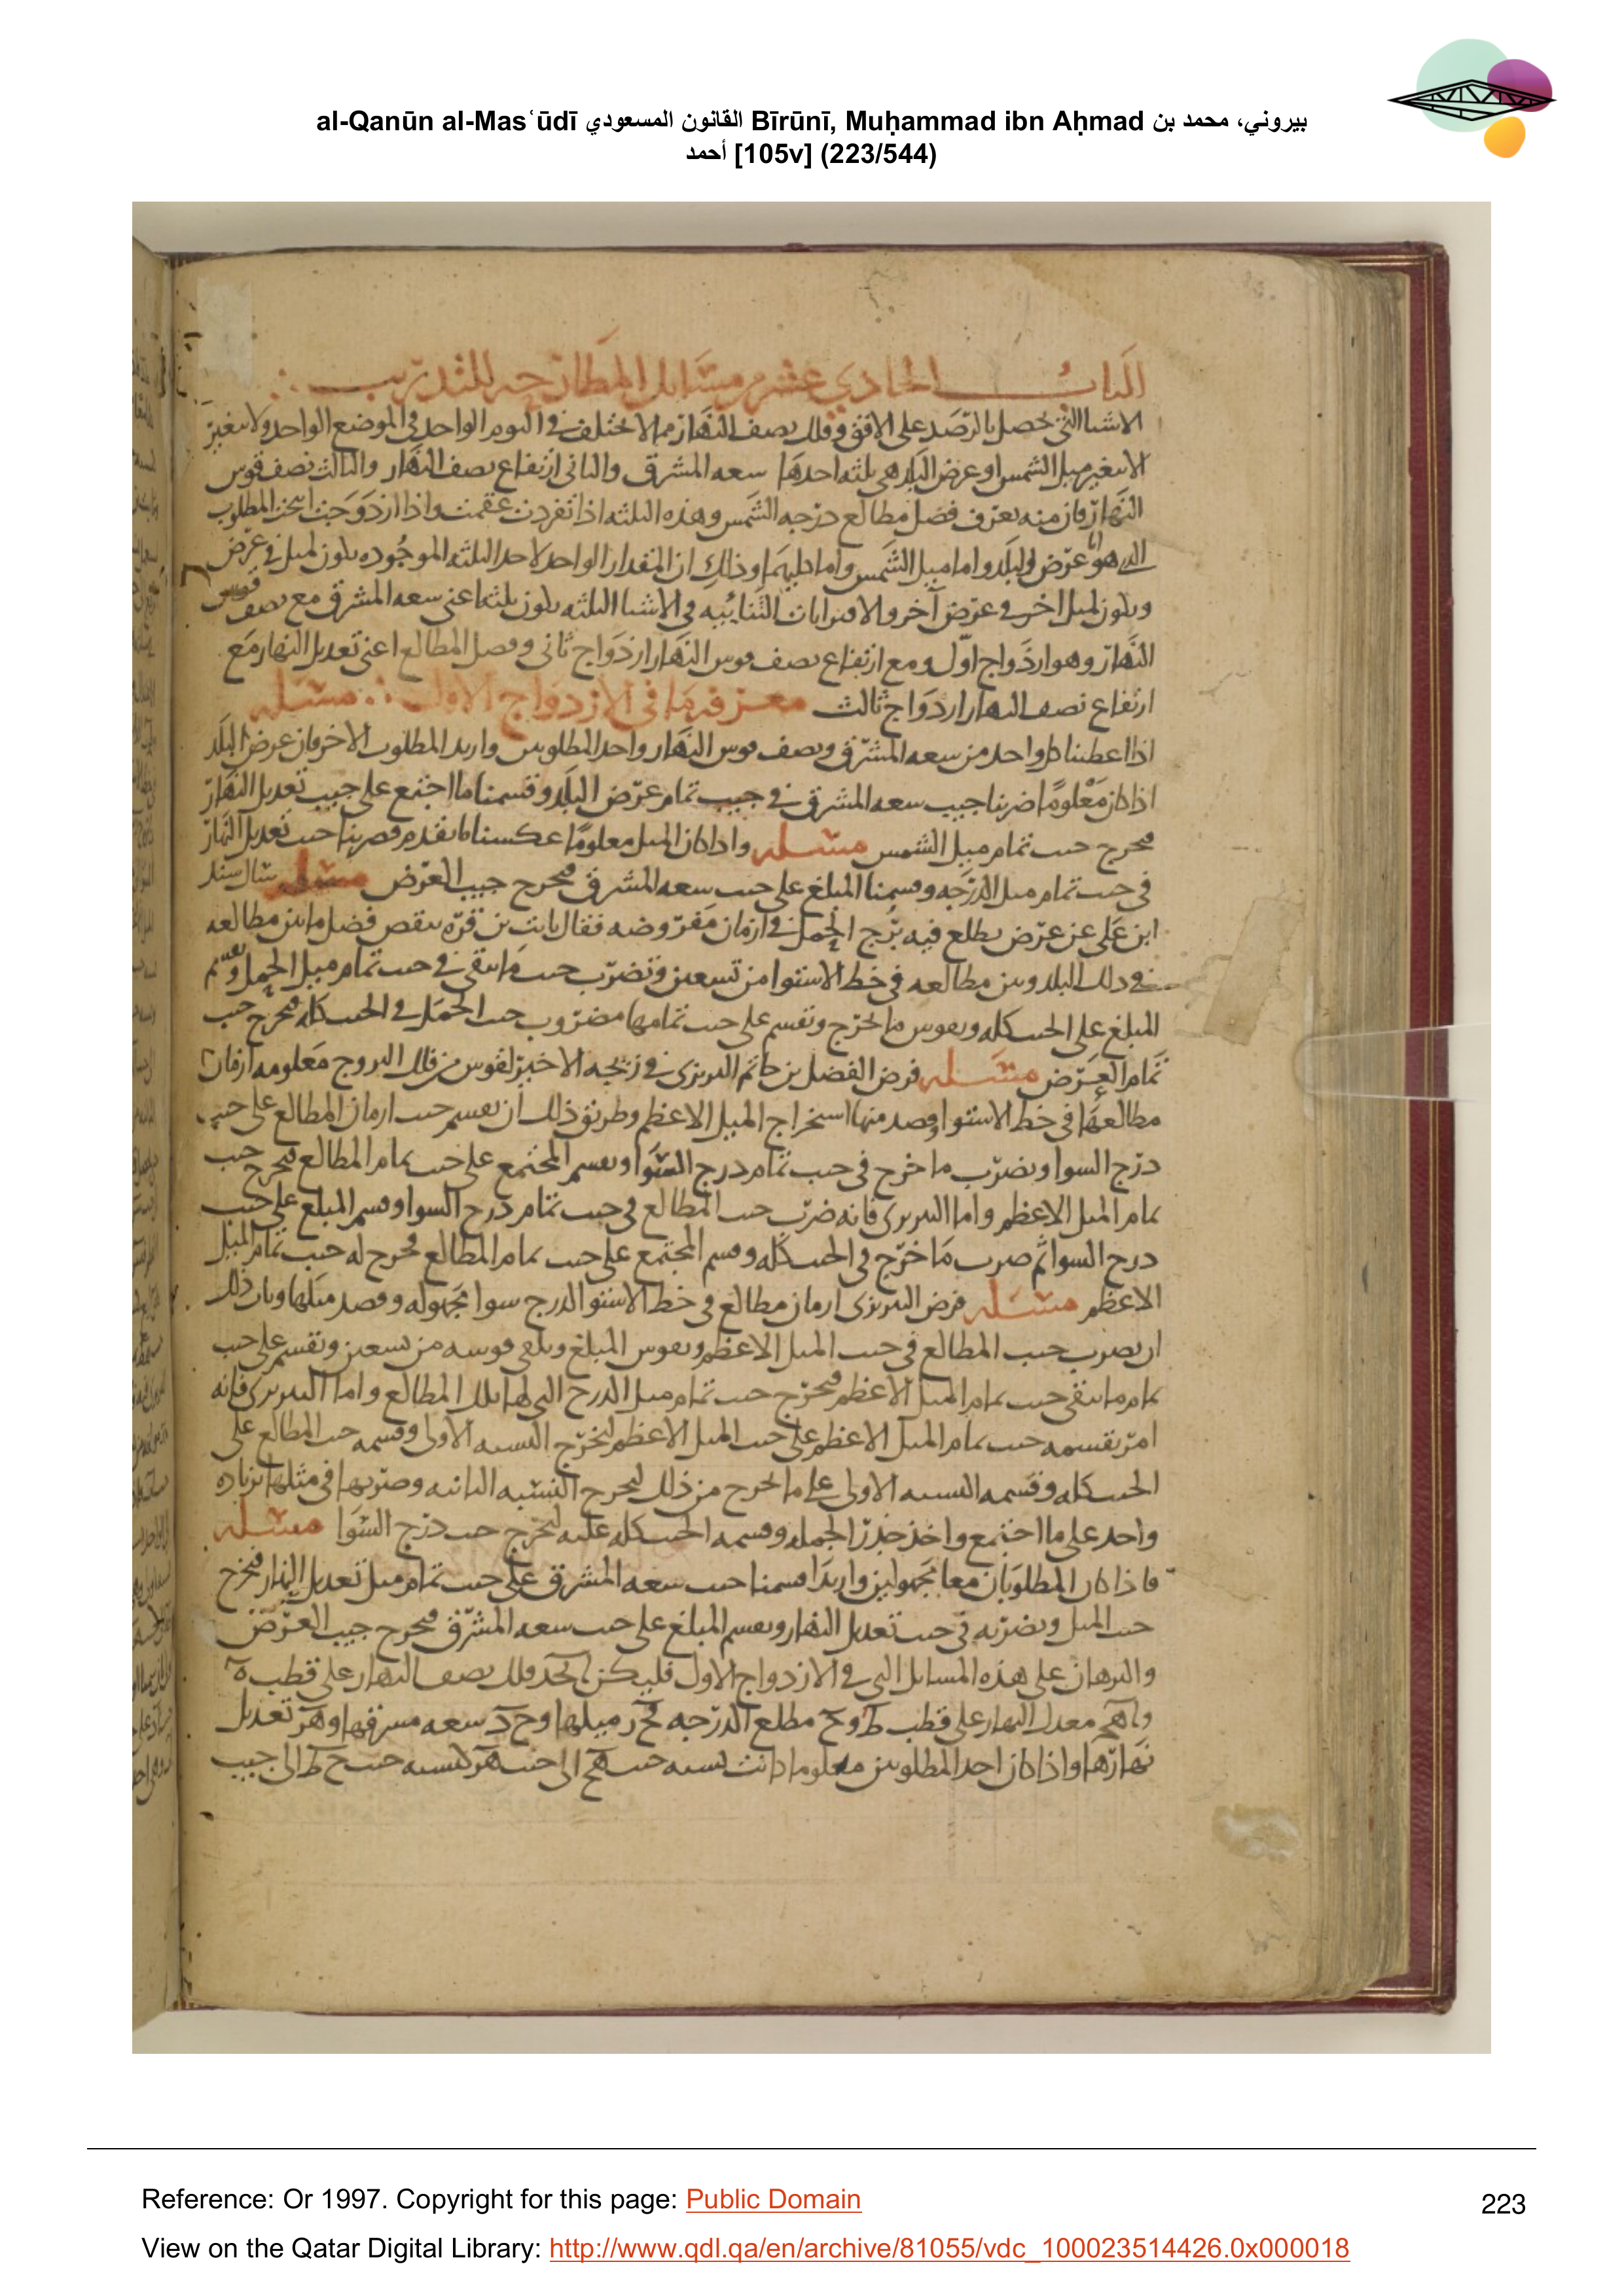 al-Qanūn al-Masʿūdī القانون المسعودي Bīrūnī, Muḥammad ibn Aḥmad بيروني، محمد بن
أحمد [105v] (223/544)
الباب الحادي عشر من مسائل المطارحه للتدريب
الاشيا التي تحصل بالرصد على الافق وفلك نصف النهار مما لا يختلف في اليوم الواحد في الموضع الواحد ولا يتغير
الا بتغير ميل الشمس او عرض البلد هي ثلثه احدها سعه المشرق والثاني ارتفاع نصف النهار والثالث نصف قوس
النهار فان منه يعرف فضل مطالع درجه الشمس وهذه الثلثه اذا تفردت عقمت واذا ازدوجت انتجت المطلوب
الذي هو اما عرض البلد واما ميل الشمس واما كليهما وذلك ان المقدار الواحد لاحد الثلثه الموجوده يكون لميل في عرض
ويكون لميل اخر في عرض آخر والاقترانات الثنائيه في الاشيا الثلثه يكون ثلثه اعني سعه المشرق مع نصف قوس
النهار وهو ازدواج اول ومع ارتفاع نصف قوس النهار ازدواج ثاني وفضل المطالع اعني تعديل النهار مع
ارتفاع نصف النهار ازدواج ثالث معرفه ما في الازدواج الاول مسئله
اذا اعطينا كل واحد من سعه المشرق ونصف قوس النهار واحد المطلوبين واريد المطلوب الاخر فان عرض البلد
اذا كان معلوما ضربنا جيب سعه المشرق في جيب تمام عرض البلد وقسمنا ما اجتمع على جيب تعديل النهار
فيخرج جيب تمام ميل الشمس مسئله واذا كان الميل معلوما عكسنا ما تقدم فضربنا جيب تعديل النهار
في جيب تمام ميل الدرجه وقسمنا المبلغ على جيب سعه المشرق فيخرج جيب العرض مسئله سال سند
ابن على عن عرض يطلع فيه برج الحمل في ازمان مفروضه فقال ثابت بن قره ينقص فضل ما بين مطالعه
في ذلك البلد وبين مطالعه في خط الاستوا من تسعين ونضرب جيب ما بقى في جيب تمام ميل الحمل ونقسم
المبلغ على الجيب كله ونقوس ما يخرج ونقسم على جيب تمامها مضروب جيب الحمل في الجيب كله فيخرج جيب
تمام العرض مسئله فرض الفضل بن حاتم النيريزى في زيجه الاخير لقوس من فلك البروج معلومه ازمان
مطالعها في خط الاستوا وقصد منها استخراج الميل الاعظم وطريق ذلك ان نقسم جيب ازمان المطالع على جيب
درج السوا ونضرب ما خرج في جيب تمام درج السوا ونقسم المجتمع على جيب تمام المطالع فيخرج جيب
تمام الميل الاعظم واما النيريزى فانه ضرب جيب المطالع في جيب تمام درج السوا وقسم المبلغ على جيب
درج السوا ثم ضرب ما خرج في الجيب كله وقسم المجتمع على جيب تمام المطالع فخرج له جيب تمام الميل
الاعظم مسئله فرض النيريزى ازمان مطالع في خط الاستوا لدرج سوا مجهوله وقصد ميلها وبان ذلك
ان نضرب جيب المطالع في جيب الميل الاعظم ونقوس المبلغ ونلقى قوسه من تسعين ونقسم على جيب
تمام ما بقى جيب تمام الميل الاعظم فيخرج جيب تمام ميل الدرج التي لها تلك المطالع واما النيريزى فانه
امر بقسمه جيب تمام الميل الاعظم على جيب الميل الاعظم ليخرج النسبه الاولى وقسمه جيب المطالع على
الجيب كله وقسمه النسبه الاولى على ما يخرج من ذلك ليخرج النسبه الثانيه وضربها في مثلها بزياده
واحد على ما اجتمع واخذ جذر الجمله وقسمه الجيب كله عليه ليخرج جيب درج السوا مسئله
فاذا كان المطلوبان معا مجهولين واريدا قسمنا جيب سعه المشرق على جيب تمام ميل تعديل النهار فيخرج
جيب الميل ونضربه في جيب تعديل النهار ونقسم المبلغ على جيب سعه المشرق فيخرج جيب العرض
والبرهان على هذه المسائل التي في الازدواج الاول فليكن ا ب ج د فلك نصف النهار على قطب ه
و ا ه ج معدل النهار على قطب ط و ح مطلع الدرجه ح ز ميلها و ح د سعه مشرقها و ه ز تعديل
نهارها واذا كان احد المطلوبين معلوما كانت نسبه جيب ه ح الى جيب ه ز كنسبه جيب ح ط الى جيب
Reference: Or 1997. Copyright for this page: Public Domain
223
View on the Qatar Digital Library: http://www.qdl.qa/en/archive/81055/vdc_100023514426.0x000018